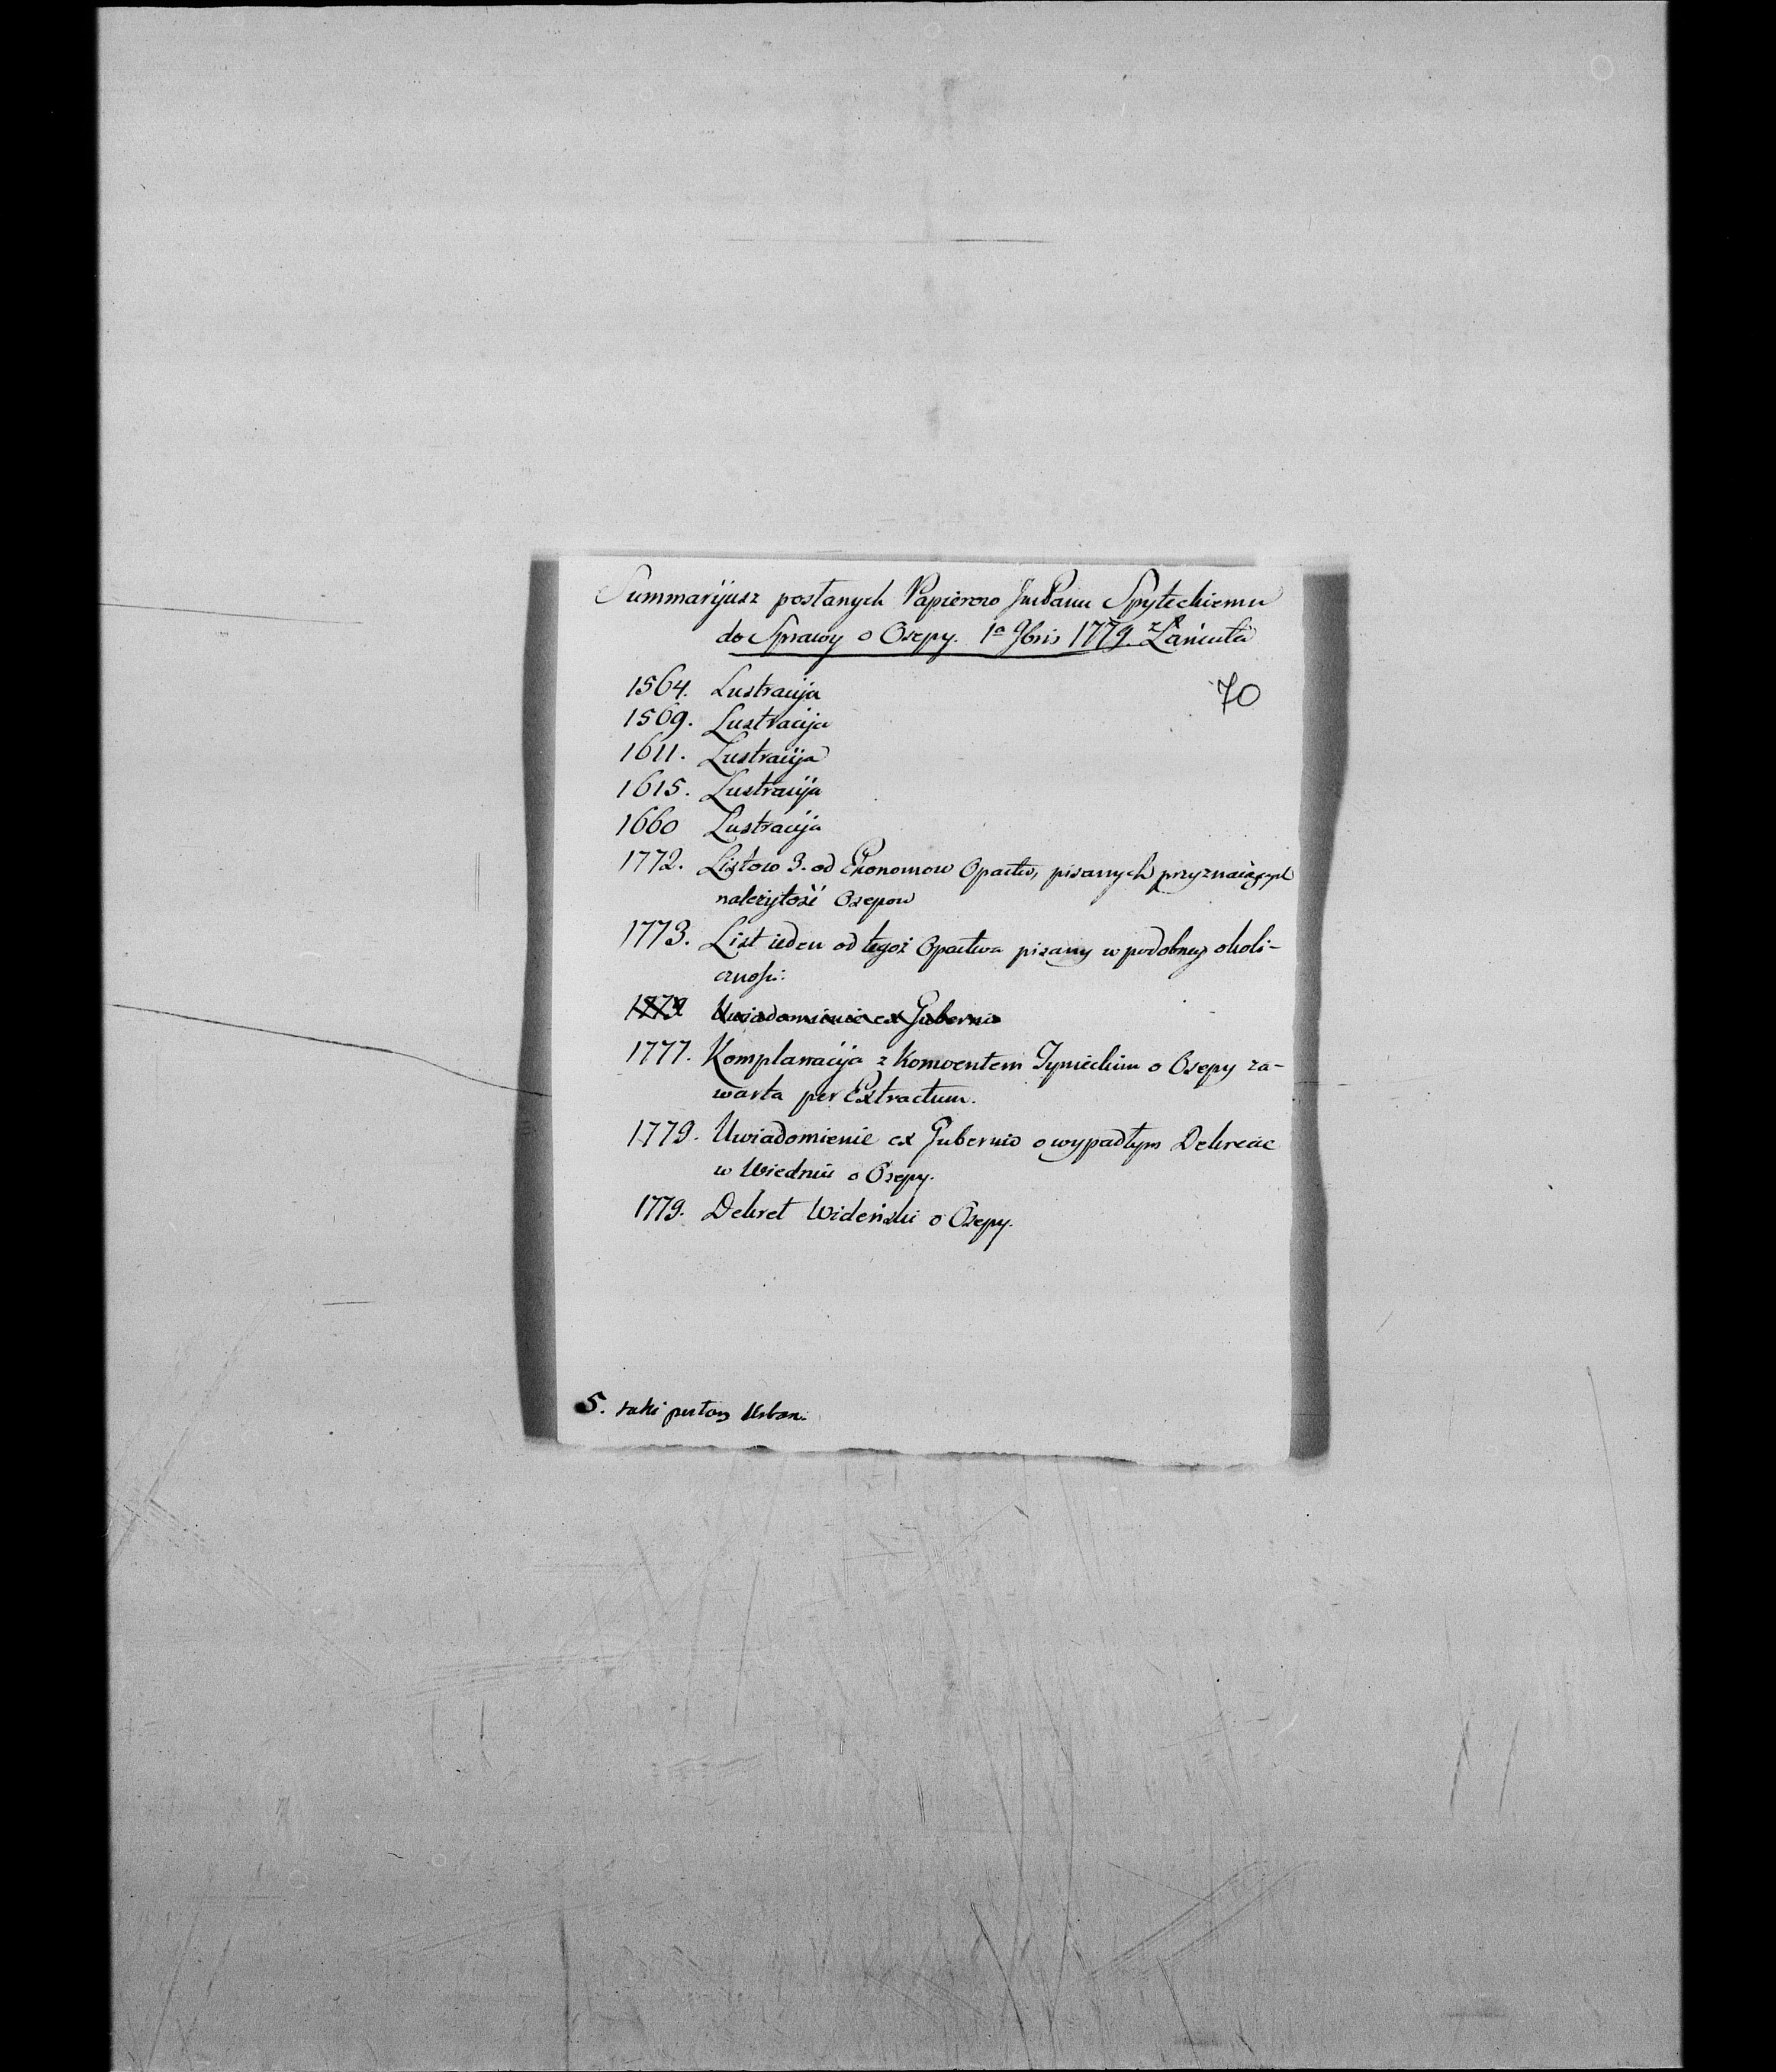 Summaryusz posłanych Papierow JmPanu Spyteckiemu
do Sprawy o Osepy. 1a 9bris 1779. z Łańcuta
70
1564. Lustracyja
1569. Lustracyja
1611. Lustracyja
1615. Lustracyja
1660 Lustracyja
1772. Listow 3. od Ekonomow Opactw, pisanych przyznaiących
należytość Osepow
1773. List ieden od tegoż Opactwa pisany w podobney okoli-
czności.
1779 Uwiadomienie ex Gubernio
1777. Komplanacyja z Konwentem Tynieckim o Osepy za-
warta per Extractum.
1779. Uwiadomienie ex Gubernio o wypadłym Dekrecie
w Wiedniu o Osepy.
1779. Dekret Wideński o Osepy.
5.